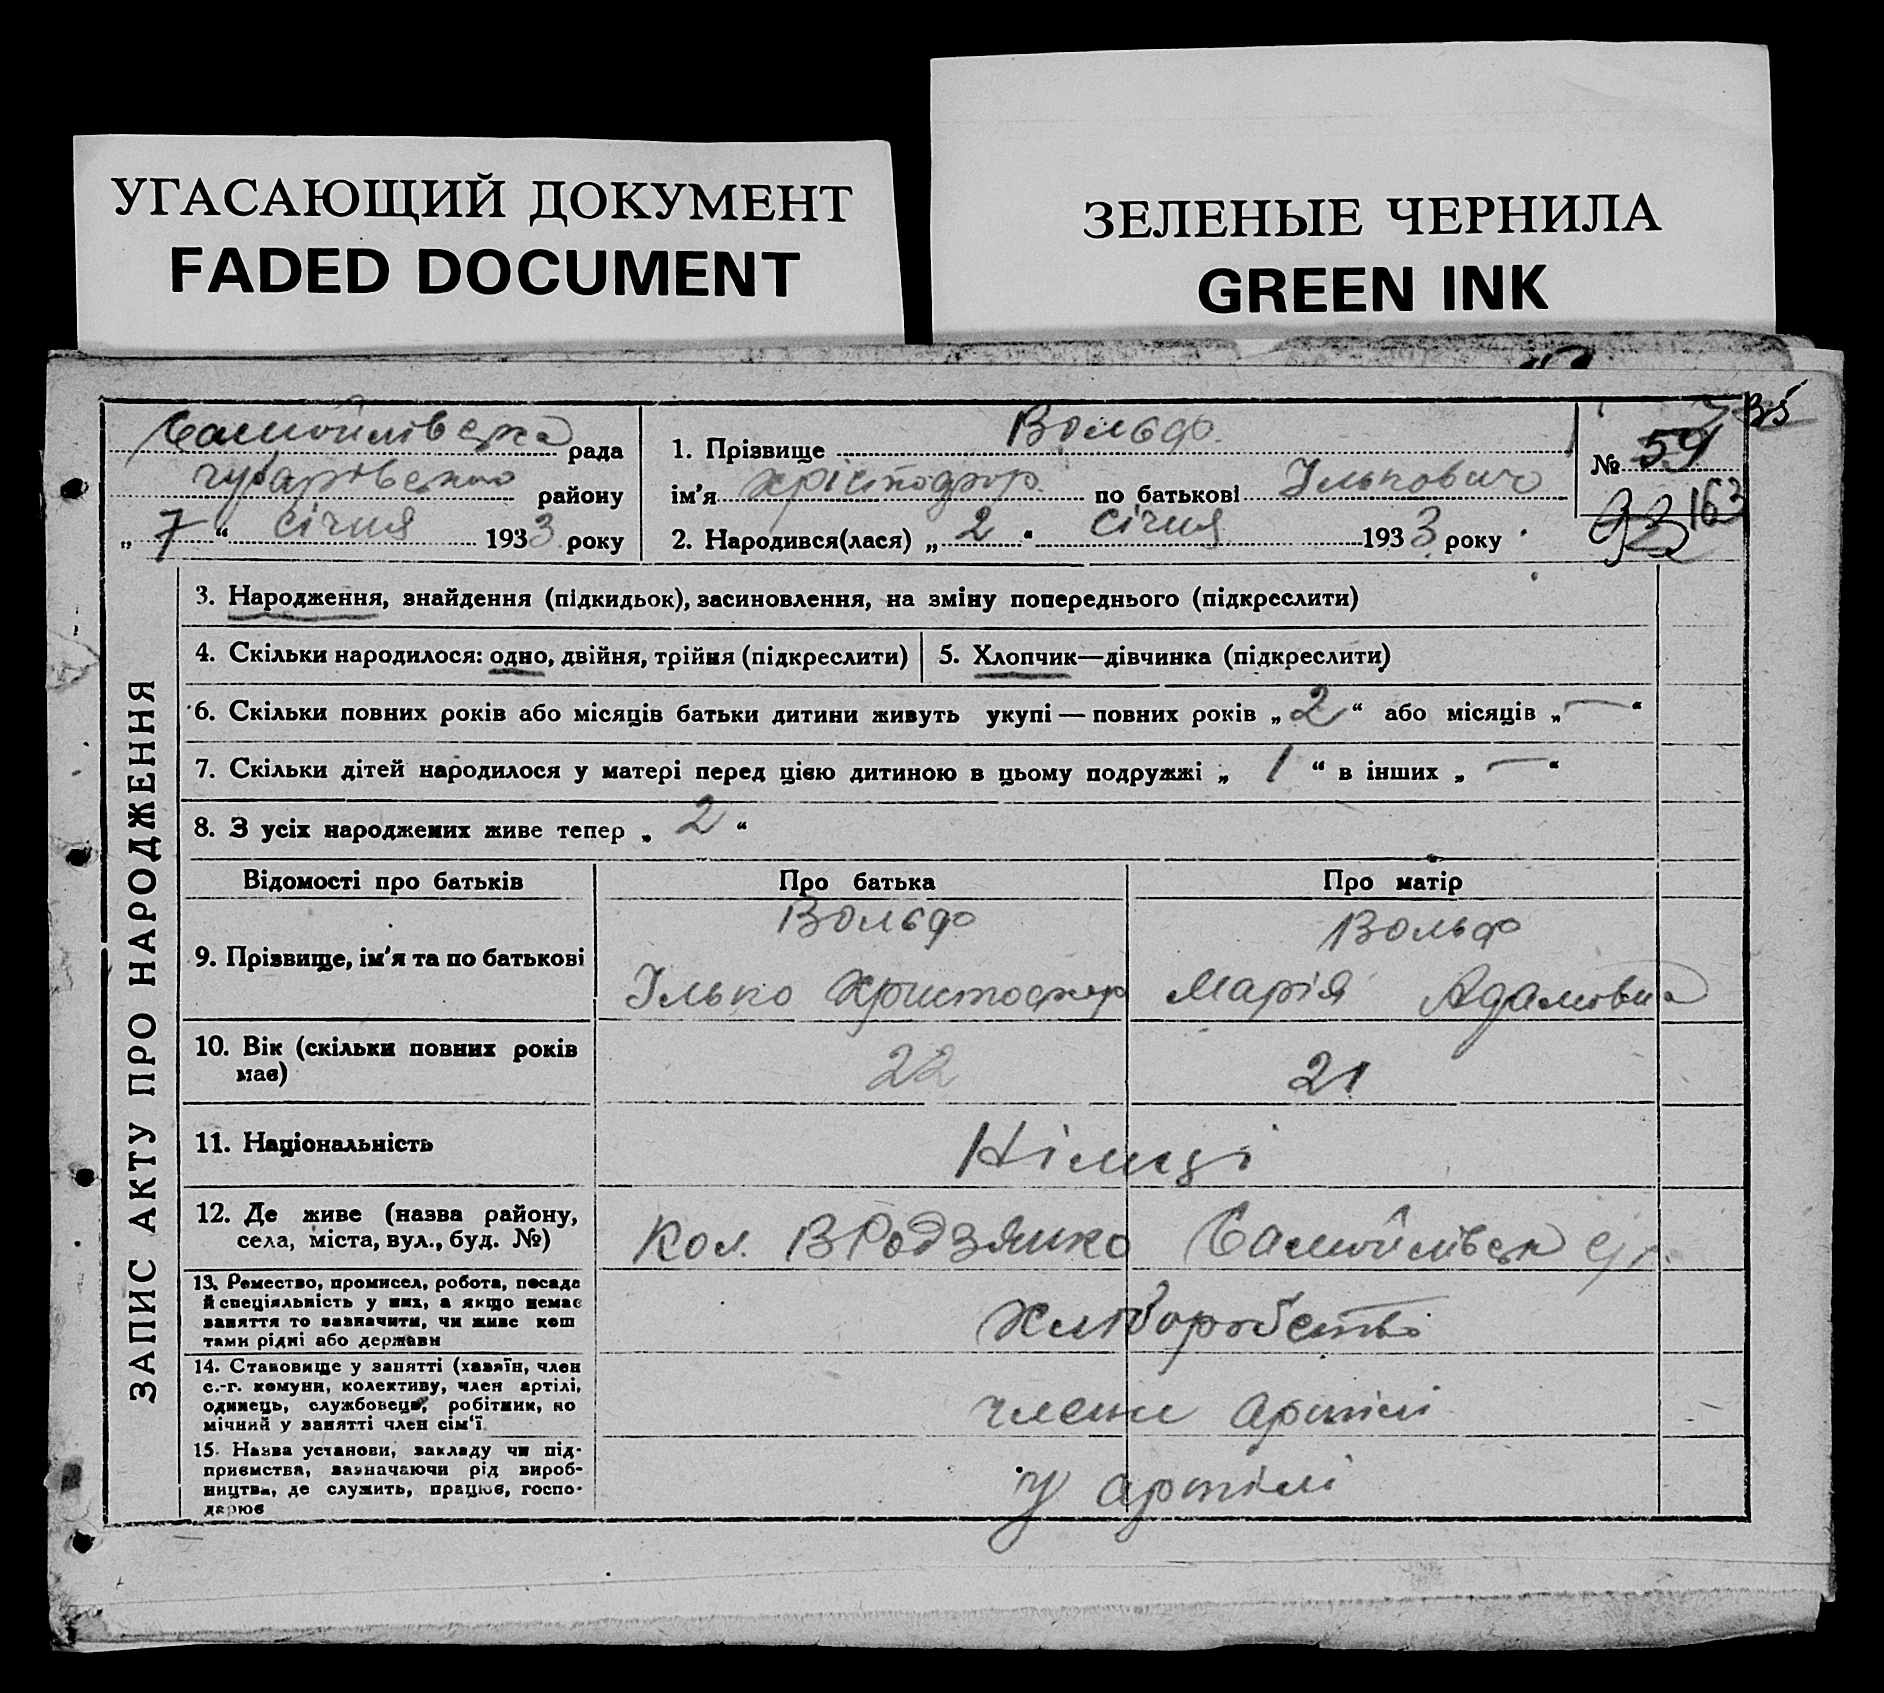 УГАСАЮЩИЙ ДОКУМЕНТ
FADED DOCUMENT
ЗЕЛЕНЫЕ ЧЕРНИЛА
GREEN INK
ЗАПИС АКТУ ПРО НАРОДЖЕННЯ
Самойлівська рада
району
„ 7 “ січня 1933 року
1. Прізвище Вольф
ім'я Хрістофор по батькові Ількович
2. Народився(лася) „ 2 “ січня 1933 року
№ 59
93 163
35
3. Народження, знайдення (підкидьок), засиновлення, на зміну попереднього (підкреслити)
4. Скільки народилося: одно, двійня, трійня (підкреслити)
5. Хлопчик—дівчинка (підкреслити)
6. Скільки повних років або місяців батьки дитини живуть укупі — повних років „ 2 “ або місяців „ — “
7. Скільки дітей народилося у матері перед цією дитиною в цьому подружжі „ 1 “ в інших „ — “
8. З усіх народжених живе тепер „ 2 “
Відомості про батьків
Про батька
Про матір
9. Прізвище, ім'я та по батькові
Вольф
Ілько Христофор
Вольф
Марія Адамовна
10. Вік (скільки повних років
має)
22
21
11. Національність
Німці
12. Де живе (назва району,
села, міста, вул., буд. №)
Кол. В Родзянко Самойлівськ с/р.
13. Ремество, промисел, робота, посада
й спеціяльність у них, а якщо немає
заняття то зазначити, чи живе кош
тами рідні або держави
Хліборобство
14. Становище у занятті (хазяїн, член
с.-г. комуни, колективу, член артілі,
одинець, службовець, робітник, по
мічний у занятті член сім'ї.
члени артілі
15. Назва установи, закладу чи під-
приємства, зазначаючи рід вироб-
ництва, де служить, працює, госпо-
дарює
у артілі